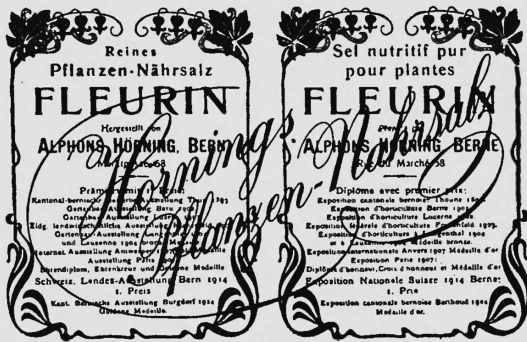 Reines
Pflanzen-Nährsalz
FLEURIN
Hergestellt von
ALPHONS HÖRNING, BERN
Marktgasse 58
Prämiert mit 1. Preis:
Kantonal-bernische Ausstellung
Gartenbau Ausstellung Bern
Gartenbau Ausstellung Luzern
Eidg. landwirtschaftliche Ausstellung
Gartenbau Ausstellung
und Lausanne 1904
Internat. Ausstellung
Ausstellung Paris
Ehrendiplom, Ehrenkreuz und Goldene Medaille
Schweiz. Landes-Ausstellung Bern 1914
1. Preis
Kant. Bernische Ausstellung Burgdorf 1924
Goldene Medaille.
Sel nutritif pur
pour plantes
FLEURIN
ALPHONS HÖRNING BERNE
Rue du Marché 58
Diplôme avec premier prix:
Exposition cantonale bernoise Thoune
Exposition d'horticulture Berne
Exposition d'horticulture Lucerne
Exposition fédérale d'horticulture Frauenfeld 1903.
Exposition d'horticulture Langenthal 1904
et à Lausanne Médaille bronze.
Exposition internationale Anvers 1907 Médaille d'or
Exposition Paris 1907:
Diplôme d'honneur, Croix d'honneur et Médaille d'or
Exposition Nationale Suisse 1914 Berne:
1. Prix
Exposition cantonale bernoise Berthoud 1924
Médaille d'or.
Hörnings
Pflanzen-Nährsalz